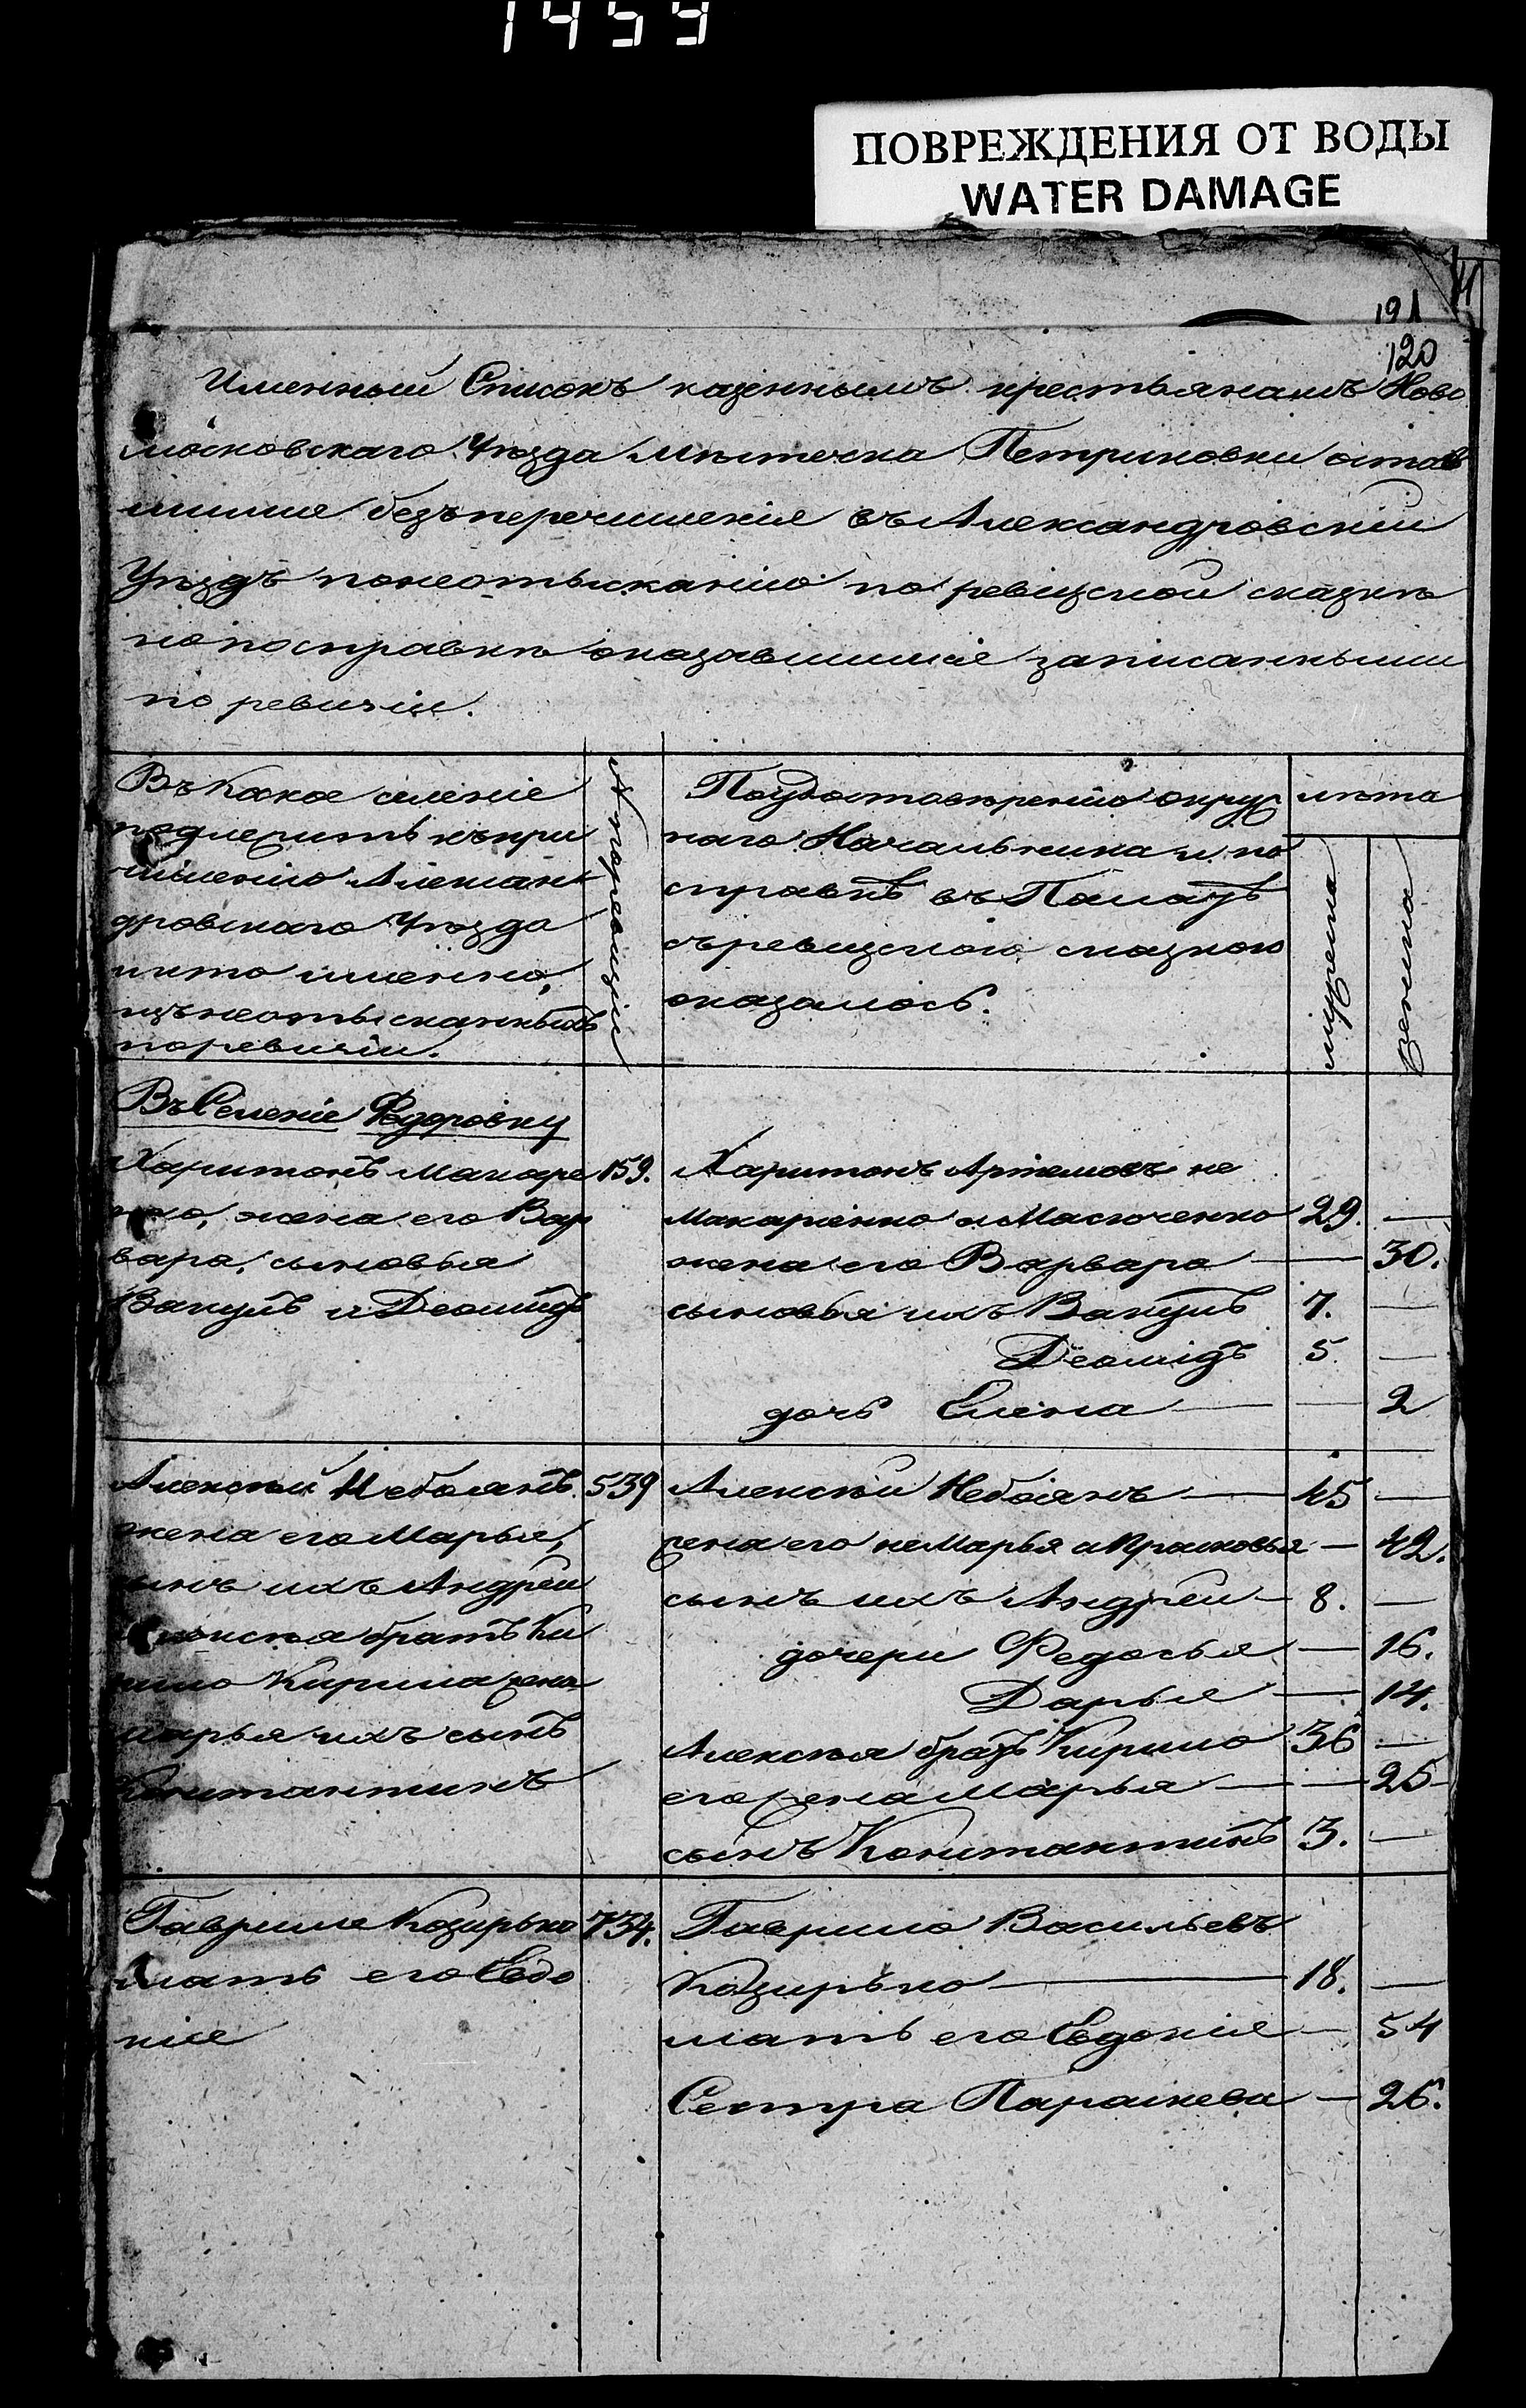 1459
ПОВРЕЖДЕНИЯ ОТ ВОДЫ
WATER DAMAGE
191
120
Именный Списокъ казеннымъ крестьянамъ Ново
московскаго Уѣзда мѣстечка Петриковки остав
шимся безъ перечисленія въ Александровскій
Уѣздъ понеотысканію по ревизской сказкѣ
но посправкѣ оказавшимся записанными
по ревизіи.
Въ Какое селеніе
подлежитъ къ при
численію Алексан
дровскаго Уѣзда
и кто именно,
изъ неотысканныхъ
поревизіи.
№ поревизіи
Поудостовѣренію окруж
наго Начальника и по
справкѣ въ Палатѣ
съ ревизскою сказкою
оказалось.
лѣта
мужеска
женска
Въ Селеніе Федоровку
Харитонъ Макаре
нко, жена его Вар
вара, сыновья
Вакулъ и Деомидъ
159.
Харитонъ Артемовъ не
Макаренко а Масюченко 29. —
жена его Варвара — 30.
сыновья ихъ Вакулъ 7. —
Деомидъ 5. —
дочь Елена — 2
Алексѣй Небоянъ
жена его Марья,
сынъ ихъ Андрей
Алексѣя братъ Ки
рило Кирила жена
Марья ихъ сынъ
Константинъ
539
Алексѣй Небоянъ — 45 —
жена его не Марья а Прасковья — 42.
сынъ ихъ Андрей — 8. —
дочери Федосья — 16.
Дарья — 14.
Алексѣя братъ Кирило 36 —
его жена Марья — 25
сынъ Константинъ 3. —
Гаврило Козирько
мать его Евдо
кія
734.
Гаврило Васильевъ
Козирько — 18. —
мать его Евдокія — 54
Сестра Параскева — 26.